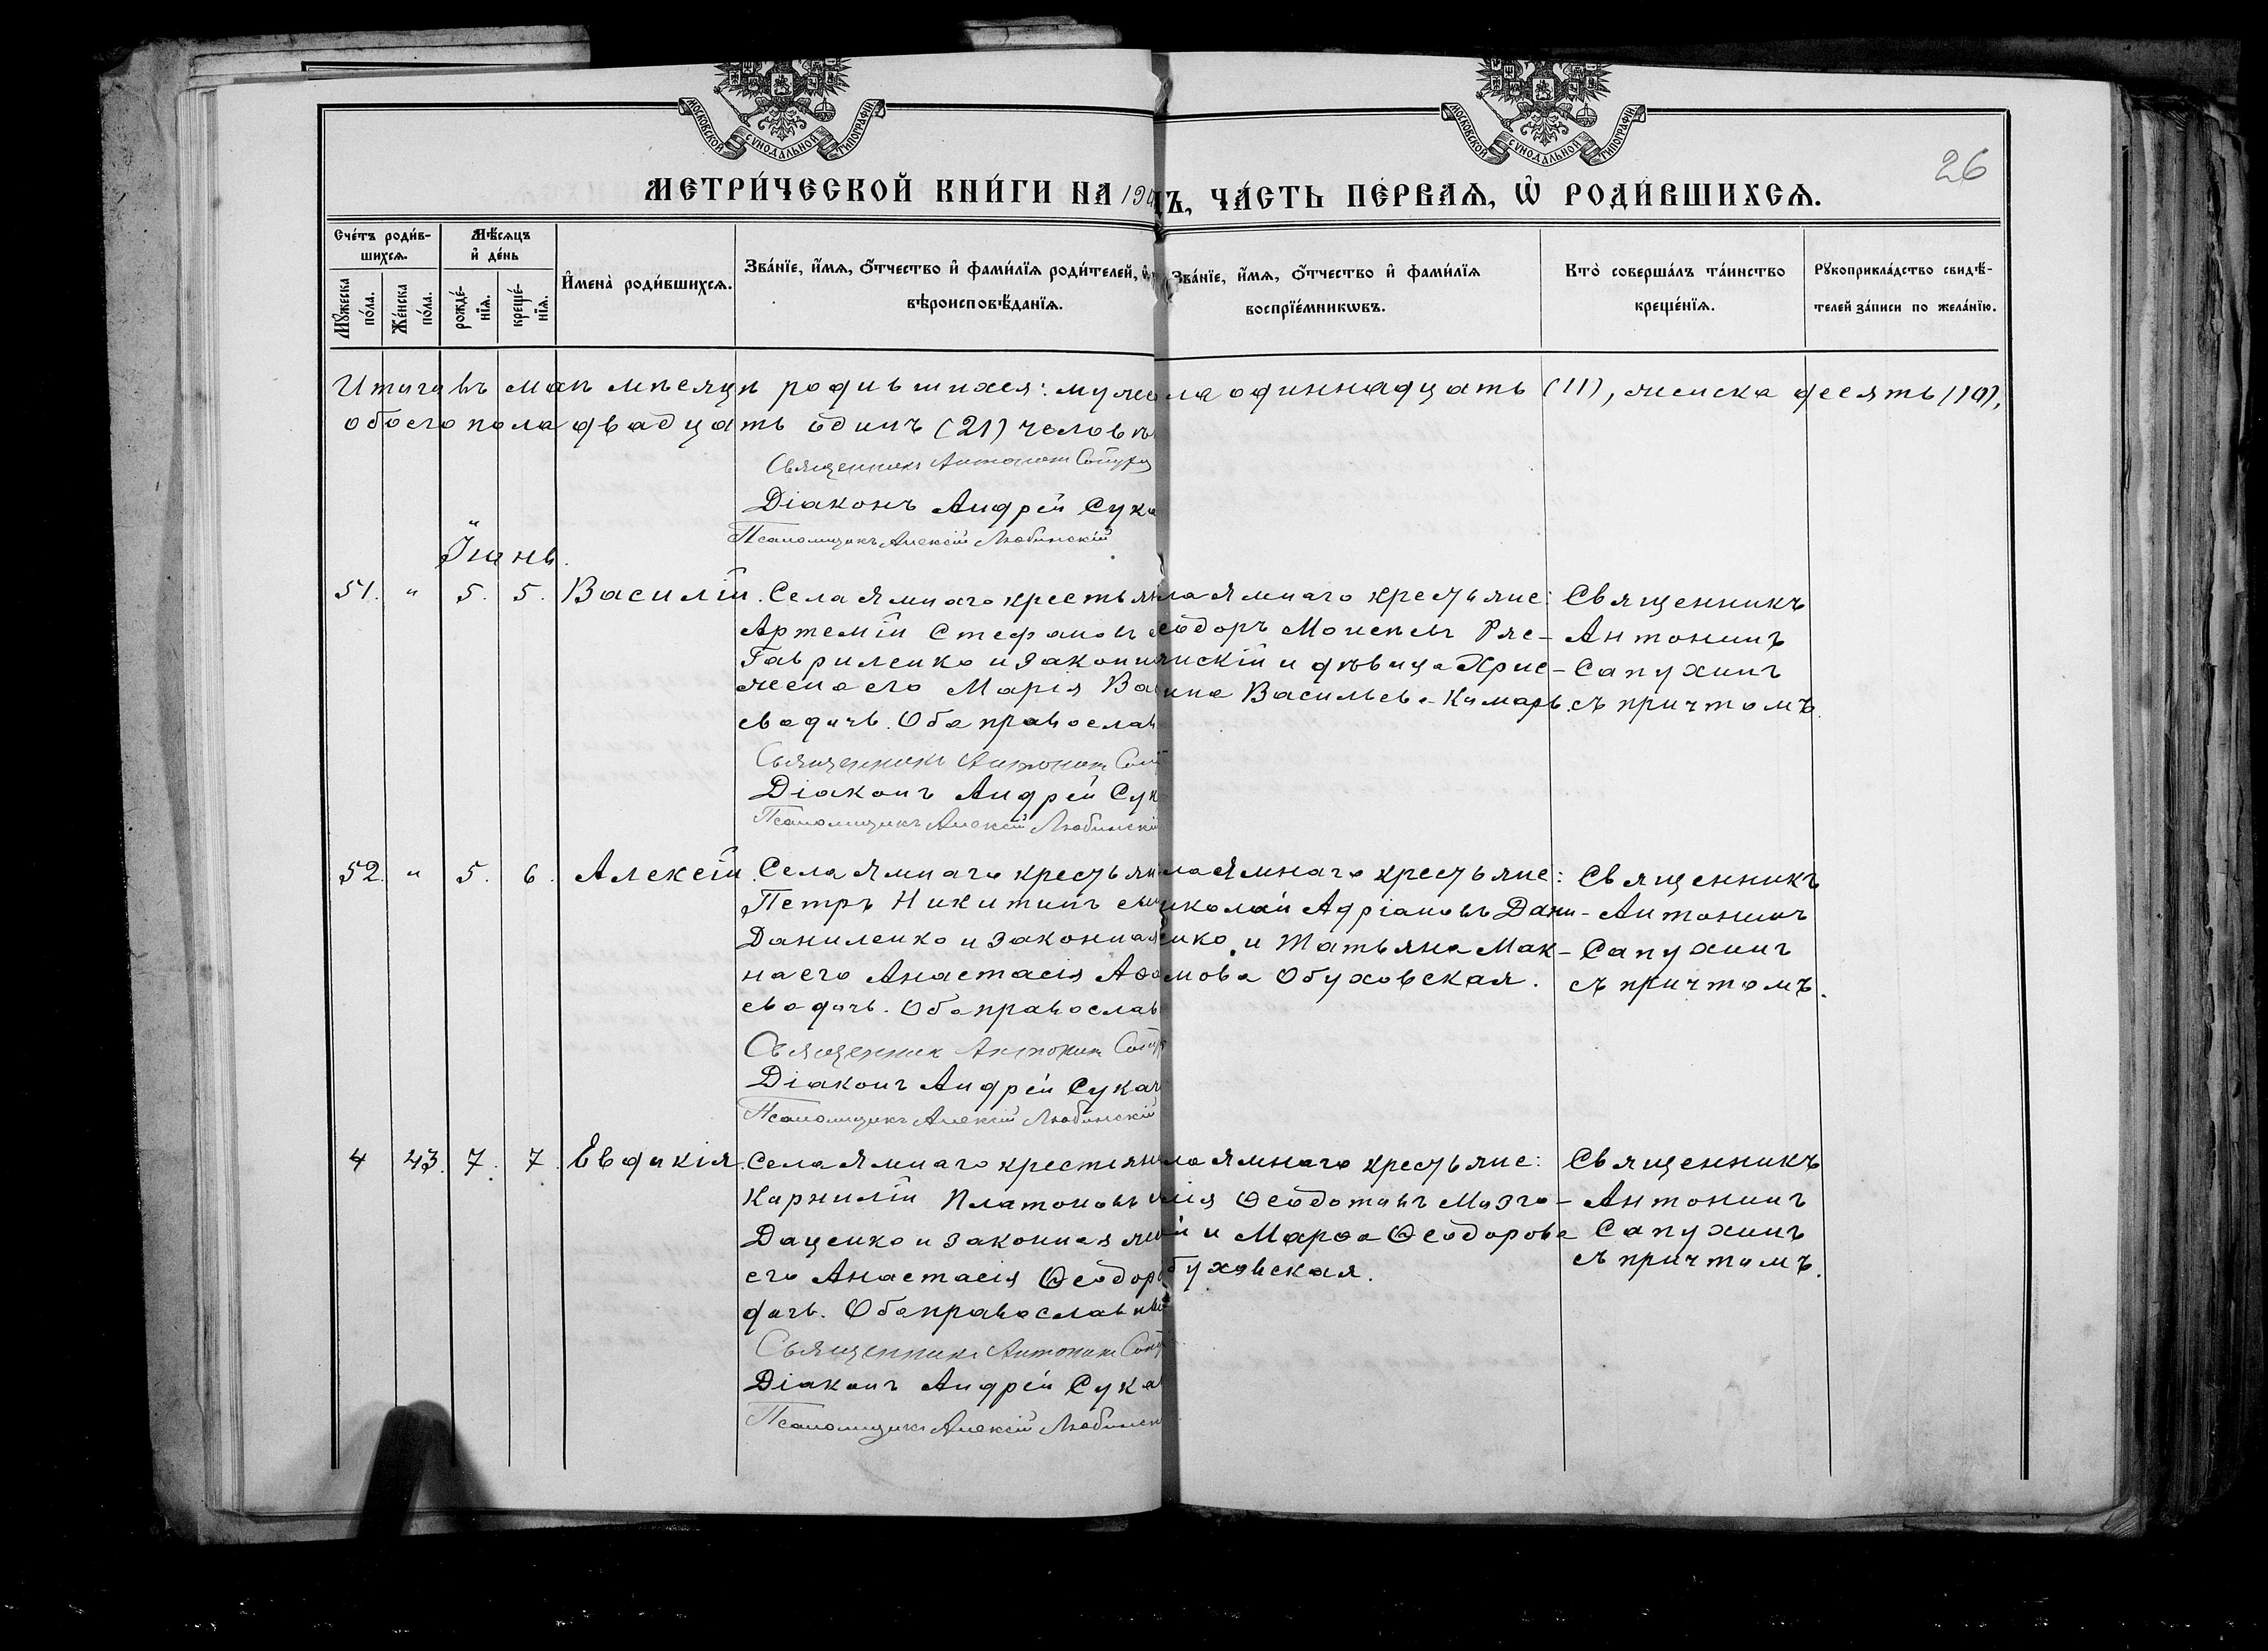 МОСКОВСКОЙ СѴНОДАЛЬНОЙ ТИПОГРАФІИ
МОСКОВСКОЙ СѴНОДАЛЬНОЙ ТИПОГРАФІИ
26
МЕТРИ́ЧЕСКОЙ КНИ́ГИ НА 19
Ъ, ЧА́СТЬ ПЕ́РВАѦ, Ѡ҆ РОДИ́ВШИХСѦ.
Сче́тъ роди́в-
шихсѧ.
Мꙋ́жеска по́ла.
Же́нска по́ла.
Мѣ́сѧцъ
и҆ де́нь
рожде́-нїѧ.
креще́-нїѧ.
И҆мена̀ роди́вшихсѧ.
Зва́нїе, и҆́мѧ, ѻ҆́тчество и҆ фами́лїѧ роди́телей,
вѣроисповѣ́данїѧ.
Зва́нїе, и҆́мѧ, ѻ҆́тчество и҆ фами́лїѧ
воспрїе́мникѡвъ.
Кто̀ соверша́лъ та́инство
креще́нїѧ.
Рꙋкоприкла́дство свидѣ́-
телей за́писи по жела́нїю.
Итого въ маѣ мѣсяцѣ родившихся: муже
ла одиннадцать (11), женска десять (10),
обоего пола двадцать одинъ (21) человѣ
Священникъ Антонинъ
Діаконъ Андрей Сука
Псаломщикъ Алексій Любинскій
Іюнь.
51. " 5. 5. Василій. Села Ямнаго крестьян
Артемій Стефановъ
Гавриленко и законн
жена его Марія Ва
свадичь. Оба православ
Священникъ Антонинъ
Діаконъ Андрей Сук
Псаломщикъ Алексій Любинскі
ла Ямнаго крестьяне:
еодоръ Моисеевъ Ряс-
янскій и дѣвица Хрис-
ина Васильева Комарь.
Священникъ
Антонинъ
Сапухинъ
съ причтомъ.
52. " 5. 6. Алексій. Села Ямнаго крестьян
Петръ Никитинъ сын
Даниленко и законная
на его Анастасія Аѳа
сводичь. Оба православ
Священник Антонин
Діаконъ Андрей Сукач
Псаломщикъ Алексій Любинскій
ла Ямнаго крестьяне:
иколай Адріановъ Дани-
енко и Татьяна Мак-
мова Обуховская.
Священникъ
Антонинъ
Сапухинъ
съ причтомъ.
43. 7. 7. Евдокія. Села Ямнаго крестьян
Корнилій Платоновъ
Даценко и законная же
его Анастасія Ѳеодор
дичь. Оба православны
Священникъ Антонинъ
Діаконъ Андрей Сука
Псаломщикъ Алексій Любинск
ла Ямнаго крестьяне:
илія Ѳеодотовъ Мозго-
й и Марѳа Ѳеодорова
буховская.
Священникъ
Антонинъ
Сапухинъ
съ причтомъ.